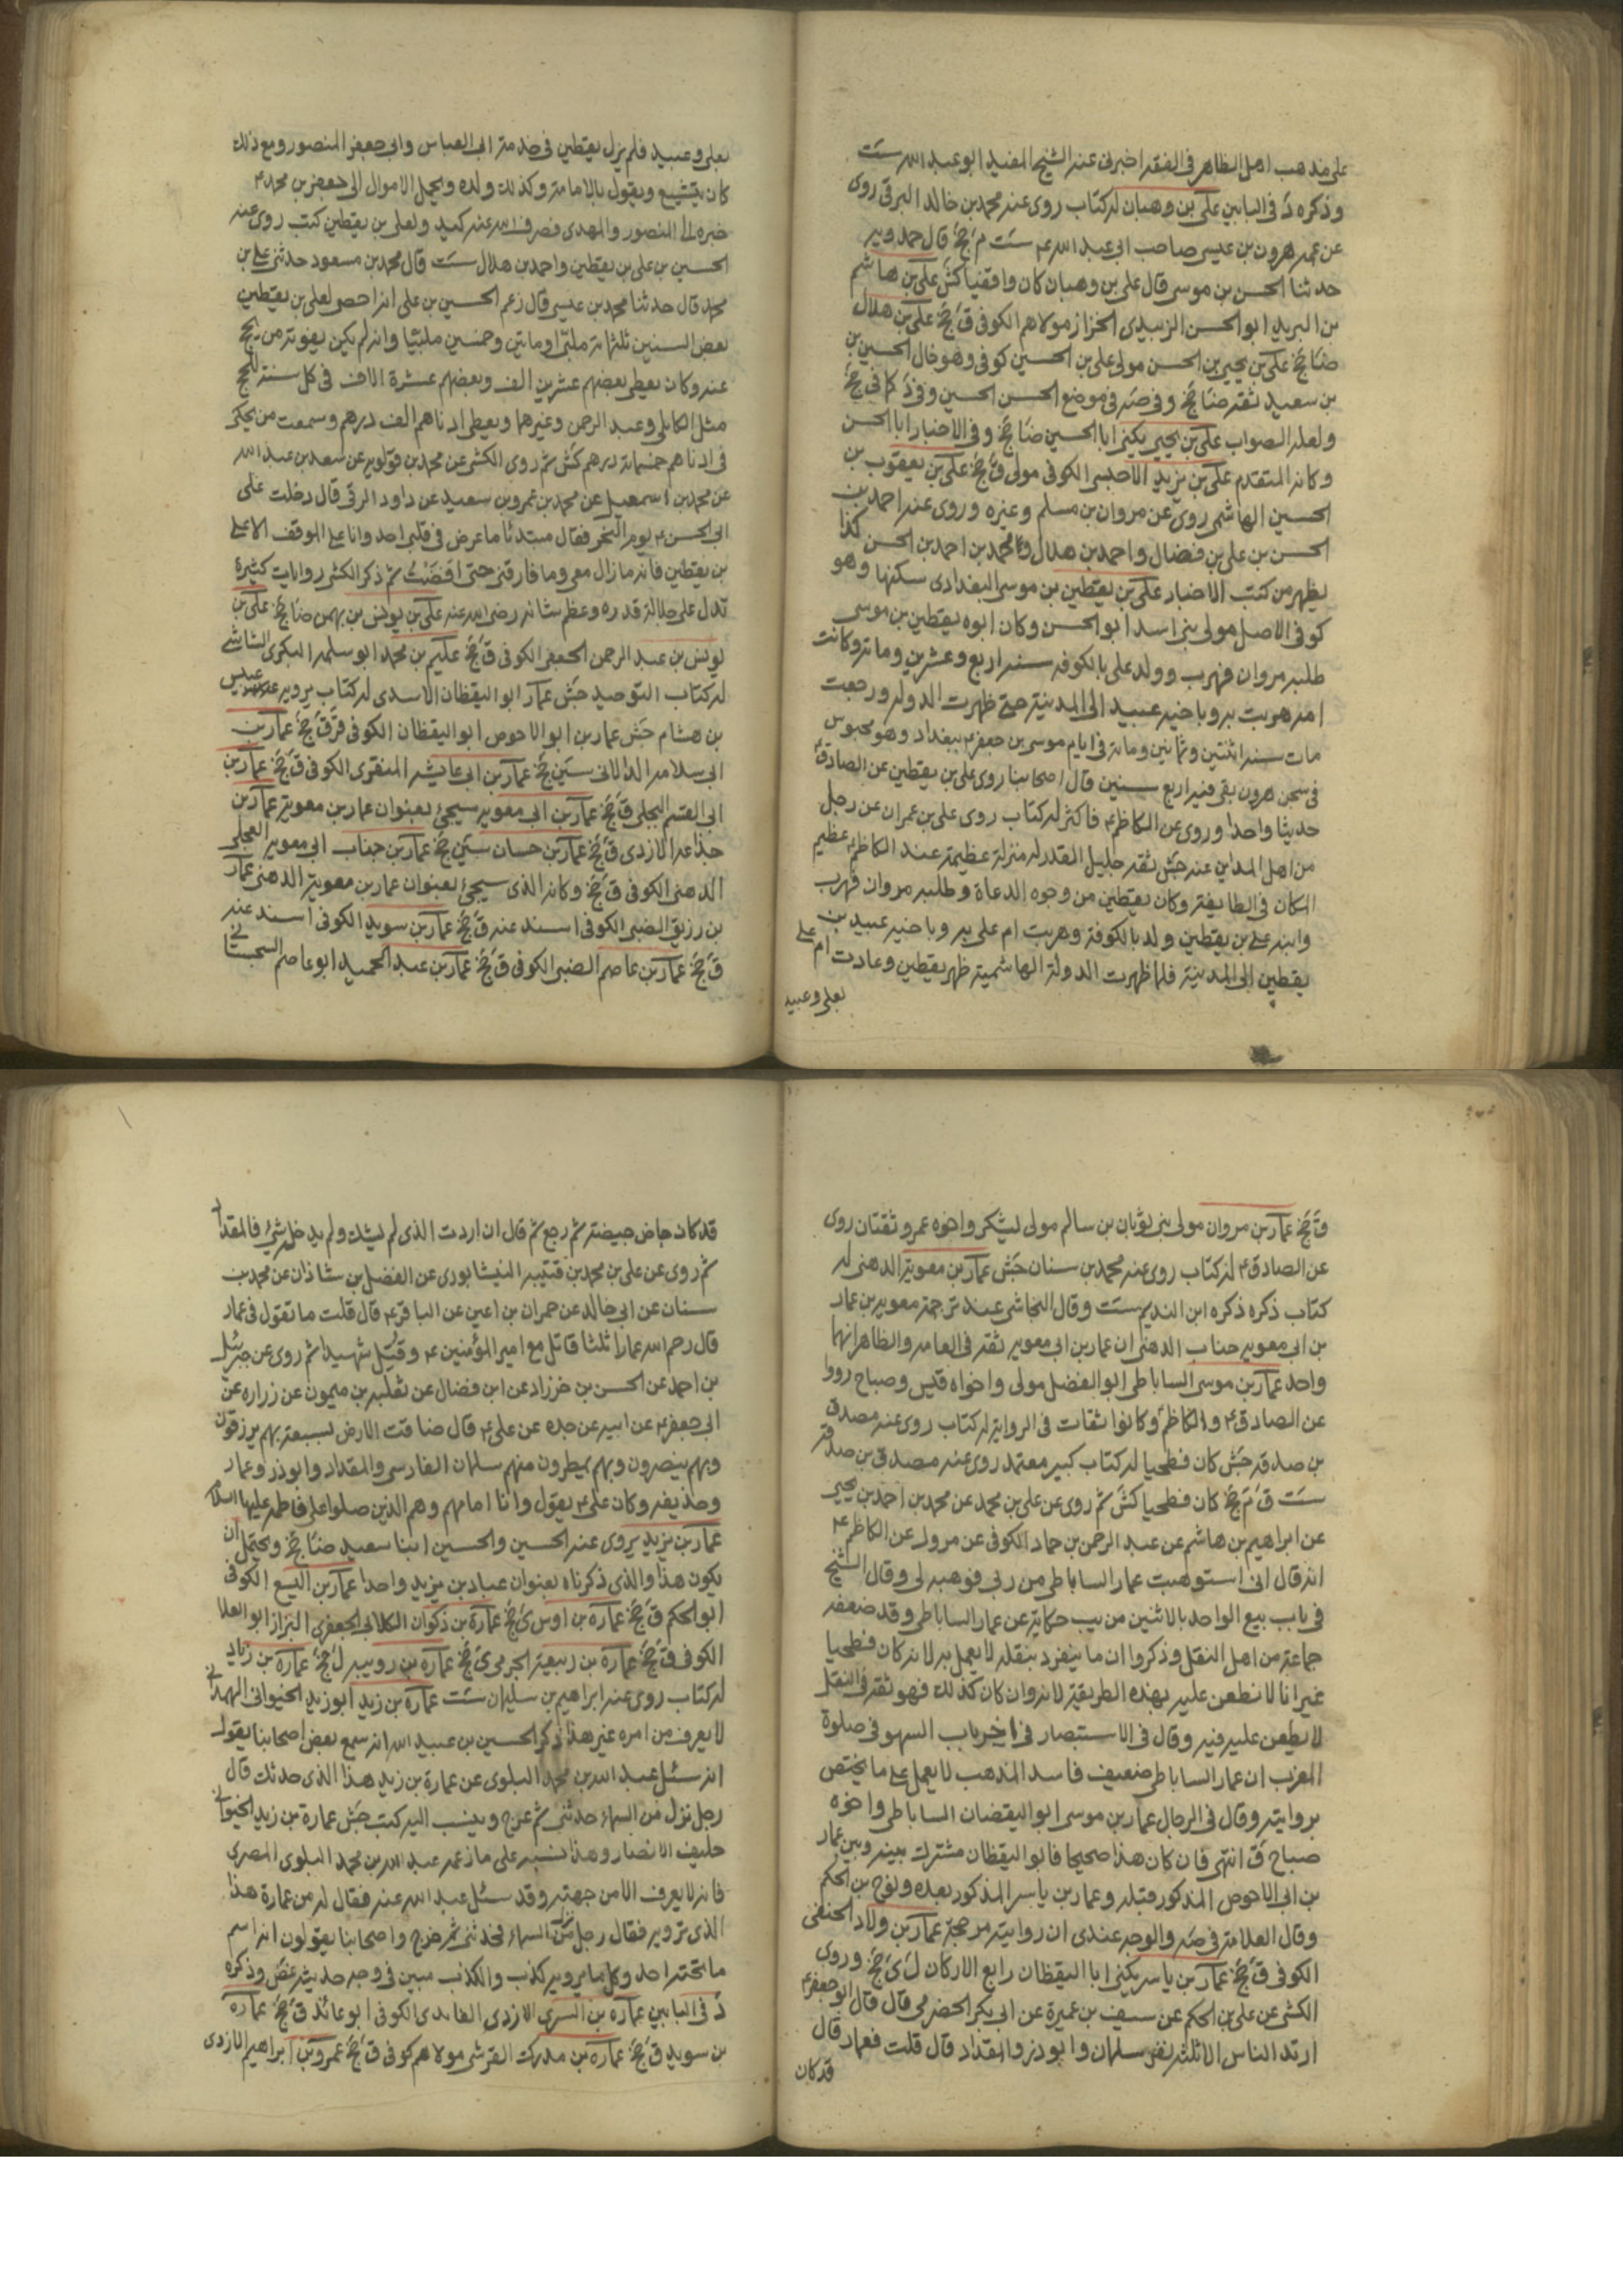 على مذهب اهل الظاهر فى الفقه اخبرنى عنه الشيخ المفيد ابو عبد الله ست
وذكره د فى البابين على بن وهبان له كتاب روى عنه محمد بن خالد البرقى روى
عن عمه هرون بن عيسى صاحب ابى عبد الله ع ست م جخ قال حمدويه
حدثنا الحسن بن موسى قال على بن وهبان كان واقفيا كش على بن هاشم
بن البريد ابو الحسن الزبيدى الخزاز مولاهم الكوفى ق جخ على بن هلال
ضا جخ على بن يحيى بن الحسن مولى على بن الحسين كوفى وهو خال الحسين بن
بن سعيد ثقه ضا جخ وفى صه فى موضع الحسن الحسين وفى د كما فى جخ
ولعله الصواب على بن يحيى يكنى ابا الحسين ضا جخ وفى الاخبار ابا الحسن
وكانه المتقدم على بن يزيد الاحبسى الكوفى مولى ق جخ على بن يعقوب بن
الحسين الهاشمى روى عن مروان بن مسلم وغيره وروى عنه احمد بن
الحسن بن على بن فضال واحمد بن هلال ومحمد بن احمد بن الحسن كذا
يظهر من كتب الاخبار على بن يقطين بن موسى البغدادى سكنها وهو
كوفى الاصل مولى بنى اسد ابو الحسن وكان ابوه يقطين بن موسى
طلبه مروان فهرب وولد على بالكوفه سنه اربع وعشرين ومائه وكانت
امه هربت به وباخيه عبيد الى المدينة حتى ظهرت الدوله ورجعت
مات سنه اثنتين وثمانين ومائه فى ايام موسى بن جعفر ع ببغداد وهو محبوس
فى سجن هرون بقى فيه اربع سنين قال اصحابنا روى على بن يقطين عن الصادق ع
حديثا واحدا وروى عن الكاظم ع فاكثر له كتاب روى على بن عمران عن رجل
من اهل المداين عنه جش ثقه جليل القدر له منزلة عظيمة عند الكاظم ع عظيم
المكان فى الطايفه وكان يقطين من وجوه الدعاة وطلبه مروان فهرب
وابنه على بن يقطين ولد بالكوفة وهربت ام على به وباخيه عبيد بن
يقطين الى المدينة فلما ظهرت الدولة الهاشمية ظهر يقطين وعادت ام على
بعلى وعبيد
بعلى وعبيد فلم يزل يقطين فى خدمة ابى العباس وابى جعفر المنصور ومع ذلك
كان يتشيع ويقول بالامامة وكذلك ولده ويحمل الاموال الى جعفر بن محمد ع
خبره الى المنصور والمهدى فصرف الله عنه كيد ولعلى بن يقطين كتب روى عنه
الحسين بن على بن يقطين واحمد بن هلال ست قال محمد بن مسعود حدثنى على بن
محمد قال حدثنا محمد بن عيسى قال زعم الحسين بن على انه احصى لعلى بن يقطين
بعض السنين ثلثمائة ملبّى او مائتين وخمسين ملبّيا وانه لم يكن يفوته من يحج
عنه وكان يعطى بعضهم عشرين الف وبعضهم عشرة الاف فى كل سنة للحج
مثل الكاهلى وعبد الرحمن وغيرهما ويعطى ادناهم الف درهم وسمعت من يحكى
فى ادناهم خمسمائة درهم كش ثم روى الكشى عن محمد بن قولويه عن سعد بن عبد الله
عن محمد بن اسمعيل عن محمد بن عمرو بن سعيد عن داود الرقى قال دخلت على
ابى الحسن ع يوم النحر فقال مبتدئا ما عرض فى قلبى احد وانا على الموقف الا على
بن يقطين فانه ما زال معى وما فارقنى حتى افضت ثم ذكر الكشى روايات كثيرة
تدل على جلالة قدره وعظم شانه رضى الله عنه على بن يونس بن بهمن ضا جخ على بن
يونس بن عبد الرحمن الجعفى الكوفى ق جخ عليم بن محمد ابو سلمه البكرى الشاشى
له كتاب التوحيد جش عمار ابو اليقظان الاسدى له كتاب يرويه عبيس
بن هشام جش عمار بن ابو الاحوص ابو اليقظان الكوفى قر ق جخ عمار بن
ابى سلامه الدالانى سين جخ عمار بن ابى عايشه المنقرى الكوفى ق جخ عمار بن
ابى القسم البجلى ق جخ عمار بن ابى معويه سيجئ بعنوان عمار بن معوية عمار بن
جذاعه الازدى ق جخ عمار بن حسان سين جخ عمار بن جناب ابى معويه العجلى
الدهنى الكوفى ق جخ وكانه الذى سيجئ بعنوان عمار بن معوية الدهنى عمار
بن رزيق الضبى الكوفى اسند عنه ق جخ عمار بن سويد الكوفى اسند عنه
ق جخ عمار بن عاصم الضبى الكوفى ق جخ عمار بن عبد الحميد ابو عاصم السجستانى
ق جخ عمار بن مروان مولى بنى ثوبان بن سالم مولى ليشكر واخوه عمرو ثقتان روى
عن الصادق ع له كتاب روى عنه محمد بن سنان جش عمار بن معوية الدهنى له
كتاب ذكره ذكره ابن النديم ست وقال النجاشى عند ترجمة معويه بن عمار
بن ابى معويه جناب الدهنى ان عمار بن ابى معويه ثقه فى العامه والظاهر انهما
واحد عمار بن موسى الساباطى ابو الفضل مولى واخواه قيس وصباح رووا
عن الصادق ع والكاظم ع وكانوا ثقات فى الرواية له كتاب روى عنه مصدق
بن صدقه جش كان فطحيا له كتاب كبير معتمد روى عنه مصدق بن صدقه
ست ق م جخ كان فطحيا كش ثم روى عن على بن محمد عن محمد بن احمد بن يحيى
عن ابراهيم بن هاشم عن عبد الرحمن بن حماد الكوفى عن مروك عن الكاظم ع
انه قال انى استوهبت عمار الساباطى من ربى فوهبه لى وقال الشيخ
فى باب بيع الواحد بالاثنين من يب حكاية عن عمار الساباطى وقد ضعفه
جماعة من اهل النقل وذكروا ان ما ينفرد بنقله لا يعمل به لانه كان فطحيا
غير انا لا نطعن عليه بهذه الطريقة لانه وان كان كذلك فهو ثقه فى النقل
لا يطعن عليه فيه وقال فى الاستبصار فى اخر باب السهو فى صلوة
المغرب ان عمار الساباطى ضعيف فاسد المذهب لا يعمل على ما يختص
بروايته وقال فى الرجال عمار بن موسى ابو اليقضان الساباطى واخوه
صباح ق انتهى فان كان هذا صحيحا فابو اليقظان مشترك بينه وبين عمار
بن ابى الاحوص المذكور قبله وعمار بن ياسر المذكور بعده ونوح بن الحكم
وقال العلامة فى صه والوجه عندى ان روايته مرجحة عمار بن ولاد الحنفى
الكوفى ق جخ عمار بن ياسر يكنى ابا اليقظان رابع الاركان ل ى جخ وروى
الكشى عن على بن الحكم عن سيف بن عميرة عن ابى بكر الحضرمى قال قال ابو جعفر ع
ارتد الناس الا ثلثه نفر سلمان وابو ذر والمقداد قال قلت فعمار قال
قد كان
قد كان جاض جيضة ثم رجع ثم قال ان اردت الذى لم يشك ولم يدخله شئ فالمقداد
ثم روى عن على بن محمد بن قتيبه النيشابورى عن الفضل بن شاذان عن محمد بن
سنان عن ابى خالد عن حمران بن اعين عن الباقر ع قال قلت ما تقول فى عمار
قال رحم الله عمارا ثلثا قاتل مع امير المؤمنين ع وقتل شهيدا ثم روى عن جبرئيل
بن احمد عن الحسن بن خرزاد عن ابن فضال عن ثعلبه بن ميمون عن زراره عن
ابى جعفر ع عن ابيه عن جده عن على ع قال ضاقت الارض بسبعة بهم يرزقون
وبهم ينصرون وبهم يمطرون منهم سلمان الفارسى والمقداد وابو ذر وعمار
وحذيفه وكان على ع يقول وانا امامهم وهم الذين صلوا على فاطمه عليها السلام
عمار بن يزيد يروى عنه الحسين والحسين ابنا سعيد ضا جخ ويحتمل ان
يكون هذا والذى ذكرناه بعنوان عباد بن يزيد واحدا عمار بن اليسع الكوفى
ابو الحكم ق جخ عماره بن اوس ى جخ عمارة بن ذكوان الكلابى الجعفرى البزاز ابو العلا
الكوفى ق جخ عمارة بن ربيعة الجرمى ى جخ عماره بن رويبه ل جخ عمارة بن زياد
له كتاب روى عنه ابراهيم بن سليمان ست عمارة بن زيد ابو زيد الخيوانى الهمدانى
لا يعرف من امره غير هذا ذكر الحسين بن عبيد الله انه سمع بعض اصحابنا يقول
انه سئل عبد الله بن محمد البلوى عن عمارة بن زيد هذا الذى حدثك قال
رجل نزل من السماء حدثنى ثم عرج وينسب اليه كتب جش عمارة بن زيد الخيوانى
حليف الانصار وهذا نسبه على ما زعمه عبد الله بن محمد البلوى المصرى
فانه لا يعرف الا من جهته وقد سئل عبد الله عنه فقال له من عمارة هذا
الذى ترويه فقال رجل نزل من السماء فحدثنى ثم عرج واصحابنا يقولون انه اسم
ما تحته احد وكل ما يرويه كذب والكذب مبين فى وجه حديثه غض وذكره
د فى البابين عماره بن السرى الازدى الغامدى الكوفى ابو عائذ ق جخ عماره
بن سويد ق جخ عماره بن مدرك القرشى مولاهم كوفى ق جخ عمرو بن ابراهيم الازدى